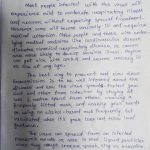 Most people infected with the virus will
experience mild to moderate respiratory illness
and recover without requiring special treatment.
However, some will become seriously ill and require
medical attention. Older people and those with under-
lying medical conditions like cardiovascular disease,
diabetes, chronic respiratory disease, or cancer
are more likely to develop serious illness. Anyone
can get sick with and become seriously ill
or die at any age.
The best way to prevent and slow down
transmission is to be well informed about the
disease and how the virus spreads. Protect your-
self and others from infection by staying at
least 1 metre apart from others, wearing a
properly fitted mask, and washing your hands
or using an alcohol-based rub frequently. Get
vaccinated when it's your turn and follow local
guidance.
The virus can spread from an infected
person's mouth or nose in small liquid particles
when they cough, sneeze, speak, sing or